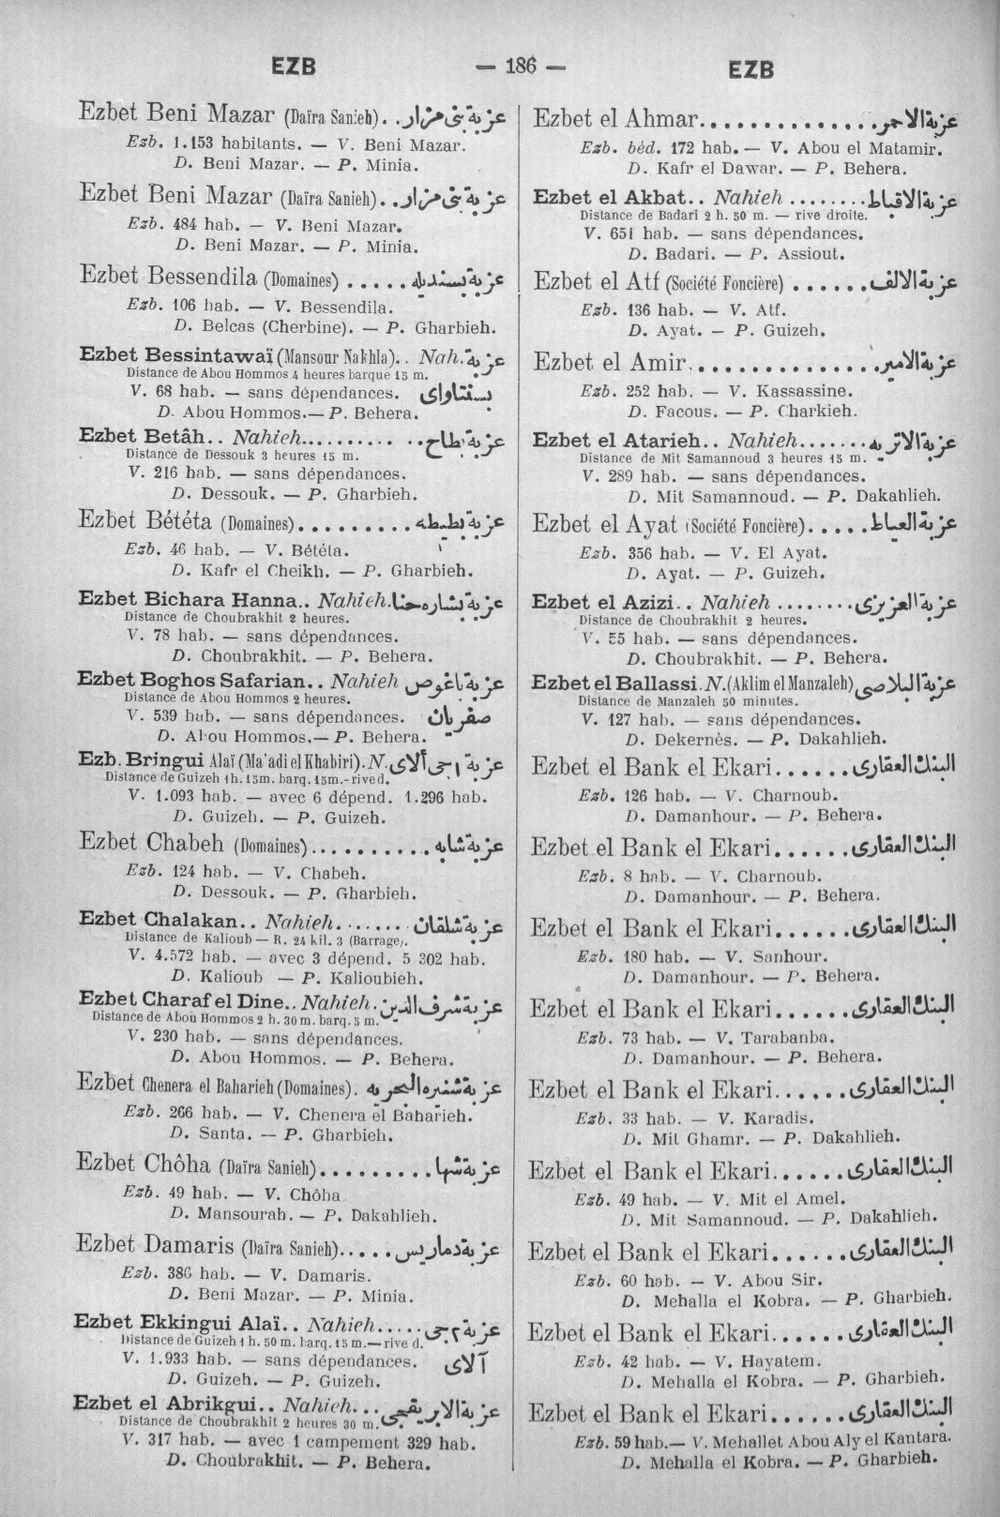 EZB
— 186 —
EZB
Ezbet Beni Mazar (Daïra Sanieh). . عزبة بنى مزار
Ezb. 1.153 habitants. — V. Beni Mazar.
D. Beni Mazar. — P. Minia.
Ezbet Beni Mazar (Daïra Sanieh). . عزبة بنى مزار
Ezb. 484 hab. — V. Beni Mazar.
D. Beni Mazar. — P. Minia.
Ezbet Bessendila (Domaines) . . . . . عزبة بسنديله
Ezb. 106 hab. — V. Bessendila.
D. Belcas (Cherbine). — P. Gharbieh.
Ezbet Bessintawaï (Mansour Nakhla). . Nah. عزبة
Distance de Abou Hommos 4 heures barque 15 m.
V. 68 hab. — sans dépendances. بسنتاواى
D. Abou Hommos. — P. Behera.
Ezbet Betâh. . Nahieh. . . . . . . . . . . . عزبة بطاح
Distance de Dessouk 3 heures 15 m.
V. 216 hab. — sans dépendances.
D. Dessouk. — P. Gharbieh.
Ezbet Bététa (Domaines). . . . . . . . . عزبة بطيطه
Ezb. 46 hab. — V. Bététa.
D. Kafr el Cheikh. — P. Gharbieh.
Ezbet Bichara Hanna. . Nahieh. عزبة بشاره حنا
Distance de Choubrakhit 2 heures.
V. 78 hab. — sans dépendances.
D. Choubrakhit. — P. Behera.
Ezbet Boghos Safarian. . Nahieh عزبة باغوص
Distance de Abou Hommos 2 heures.
V. 539 hab. — sans dépendances. صفريان
D. Abou Hommos. — P. Behera.
Ezb. Bringui Alaï (Ma'adi el Khabiri). N. عزبة برنجى آلاى
Distance de Guizeh 1h. 15m. barq. 15m.-rive d.
V. 1.093 hab. — avec 6 dépend. 1.296 hab.
D. Guizeh. — P. Guizeh.
Ezbet Chabeh (Domaines) . . . . . . . . . . عزبة شابه
Ezb. 124 hab. — V. Chabeh.
D. Dessouk. — P. Gharbieh.
Ezbet Chalakan. . Nahieh. . . . . . . عزبة شلقان
Distance de Kalioub — R. 24 kil. 3 (Barrage).
V. 4.572 hab. — avec 3 dépend. 5 302 hab.
D. Kalioub — P. Kalioubieh.
Ezbet Charaf el Dine. . Nahieh. عزبة شرف الدين
Distance de Abou Hommos 2 h. 30 m. barq. 5 m.
V. 230 hab. — sans dépendances.
D. Abou Hommos. — P. Behera.
Ezbet Chenera el Baharieh (Domaines). عزبة شنيره البحريه
Ezb. 266 hab. — V. Chenera el Baharieh.
D. Santa. — P. Gharbieh.
Ezbet Chôha (Daïra Sanieh). . . . . . . . . عزبة شها
Ezb. 49 hab. — V. Chôha
D. Mansourah. — P. Dakahlieh.
Ezbet Damaris (Daïra Sanieh). . . . . عزبة دماريس
Ezb. 386 hab. — V. Damaris.
D. Beni Mazar. — P. Minia.
Ezbet Ekkingui Alaï. . Nahieh. . . . . عزبة
Distance de Guizeh 1 h. 50 m. barq. 15 m.—rive d.
V. 1.933 hab. — sans dépendances. آلاى
D. Guizeh. — P. Guizeh.
Ezbet el Abrikgui. . Nahieh. . . عزبة الابريقجى
Distance de Choubrakhit 2 heures 30 m.
V. 317 hab. — avec 1 campement 329 hab.
D. Choubrakhit. — P. Behera.
Ezbet el Ahmar. . . . . . . . . . . . . . . عزبة الاحمر
Ezb. béd. 172 hab. — V. Abou el Matamir.
D. Kafr el Dawar. — P. Behera.
Ezbet el Akbat. . Nahieh . . . . . . . . عزبة الاقباط
Distance de Badari 2 h. 50 m. — rive droite.
V. 651 hab. — sans dépendances.
D. Badari. — P. Assiout.
Ezbet el Atf (Société Foncière) . . . . . . عزبة الالف
Ezb. 136 hab. — V. Atf.
D. Ayat. — P. Guizeh.
Ezbet el Amir. . . . . . . . . . . . . . . عزبة الامير
Ezb. 252 hab. — V. Kassassine.
D. Facous. — P. Charkieh.
Ezbet el Atarieh. . Nahieh. . . . . . . عزبة الاتربه
Distance de Mit Samannoud 3 heures 15 m.
V. 289 hab. — sans dépendances.
D. Mit Samannoud. — P. Dakahlieh.
Ezbet el Ayat (Société Foncière). . . . . عزبة العياط
Ezb. 356 hab. — V. El Ayat.
D. Ayat. — P. Guizeh.
Ezbet el Azizi. . Nahieh . . . . . . . . عزبة العزيزى
Distance de Choubrakhit 2 heures.
V. 55 hab. — sans dépendances.
D. Choubrakhit. — P. Behera.
Ezbet el Ballassi. N. (Aklim el Manzaleh) عزبة البلاصى
Distance de Manzaleh 50 minutes.
V. 127 hab. — sans dépendances.
D. Dekernès. — P. Dakahlieh.
Ezbet el Bank el Ekari. . . . . . البنك العقارى
Ezb. 126 hab. — V. Charnoub.
D. Damanhour. — P. Behera.
Ezbet el Bank el Ekari. . . . . . البنك العقارى
Ezb. 8 hab. — V. Charnoub.
D. Damanhour. — P. Behera.
Ezbet el Bank el Ekari. . . . . . البنك العقارى
Ezb. 180 hab. — V. Sanhour.
D. Damanhour. — P. Behera.
Ezbet el Bank el Ekari. . . . . . البنك العقارى
Ezb. 73 hab. — V. Tarabanba.
D. Damanhour. — P. Behera.
Ezbet el Bank el Ekari. . . . . . البنك العقارى
Ezb. 33 hab. — V. Karadis.
D. Mit Ghamr. — P. Dakahlieh.
Ezbet el Bank el Ekari. . . . . . البنك العقارى
Ezb. 49 hab. — V. Mit el Amel.
D. Mit Samannoud. — P. Dakahlieh.
Ezbet el Bank el Ekari. . . . . . البنك العقارى
Ezb. 60 hab. — V. Abou Sir.
D. Mehalla el Kobra. — P. Gharbieh.
Ezbet el Bank el Ekari. . . . . . البنك العقارى
Ezb. 42 hab. — V. Hayatem.
D. Mehalla el Kobra. — P. Gharbieh.
Ezbet el Bank el Ekari. . . . . . البنك العقارى
Ezb. 59 hab. — V. Mehallet Abou Aly el Kantara.
D. Mehalla el Kobra. — P. Gharbieh.